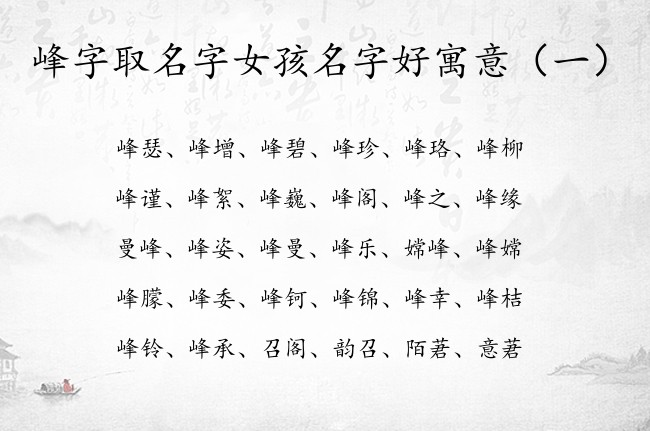 峰字取名字女孩名字好寓意（一）
峰瑟、峰增、峰碧、峰珍、峰珞、峰柳
峰谨、峰絮、峰巍、峰阁、峰之、峰缘
曼峰、峰姿、峰曼、峰乐、嫦峰、峰嫦
峰朦、峰委、峰钶、峰锦、峰幸、峰桔
峰铃、峰承、召阁、韵召、陌莙、意莙